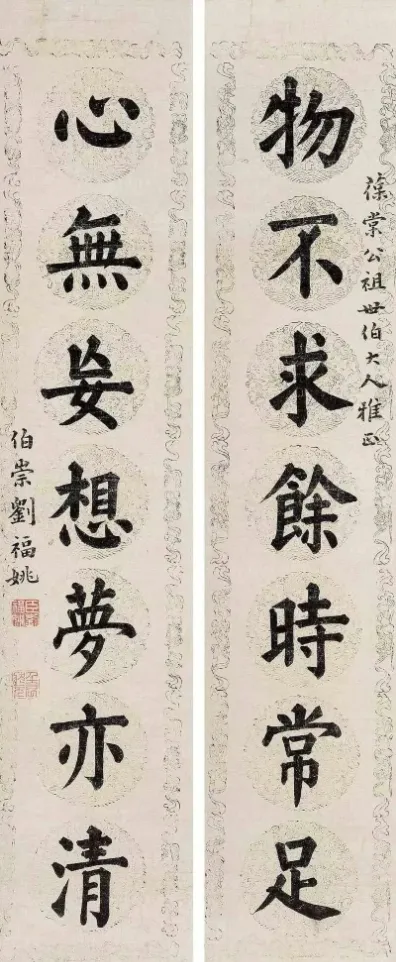 葆棠公祖世伯大人雅正
物不求餘時常足
心無妄想夢亦清
伯崇劉福姚